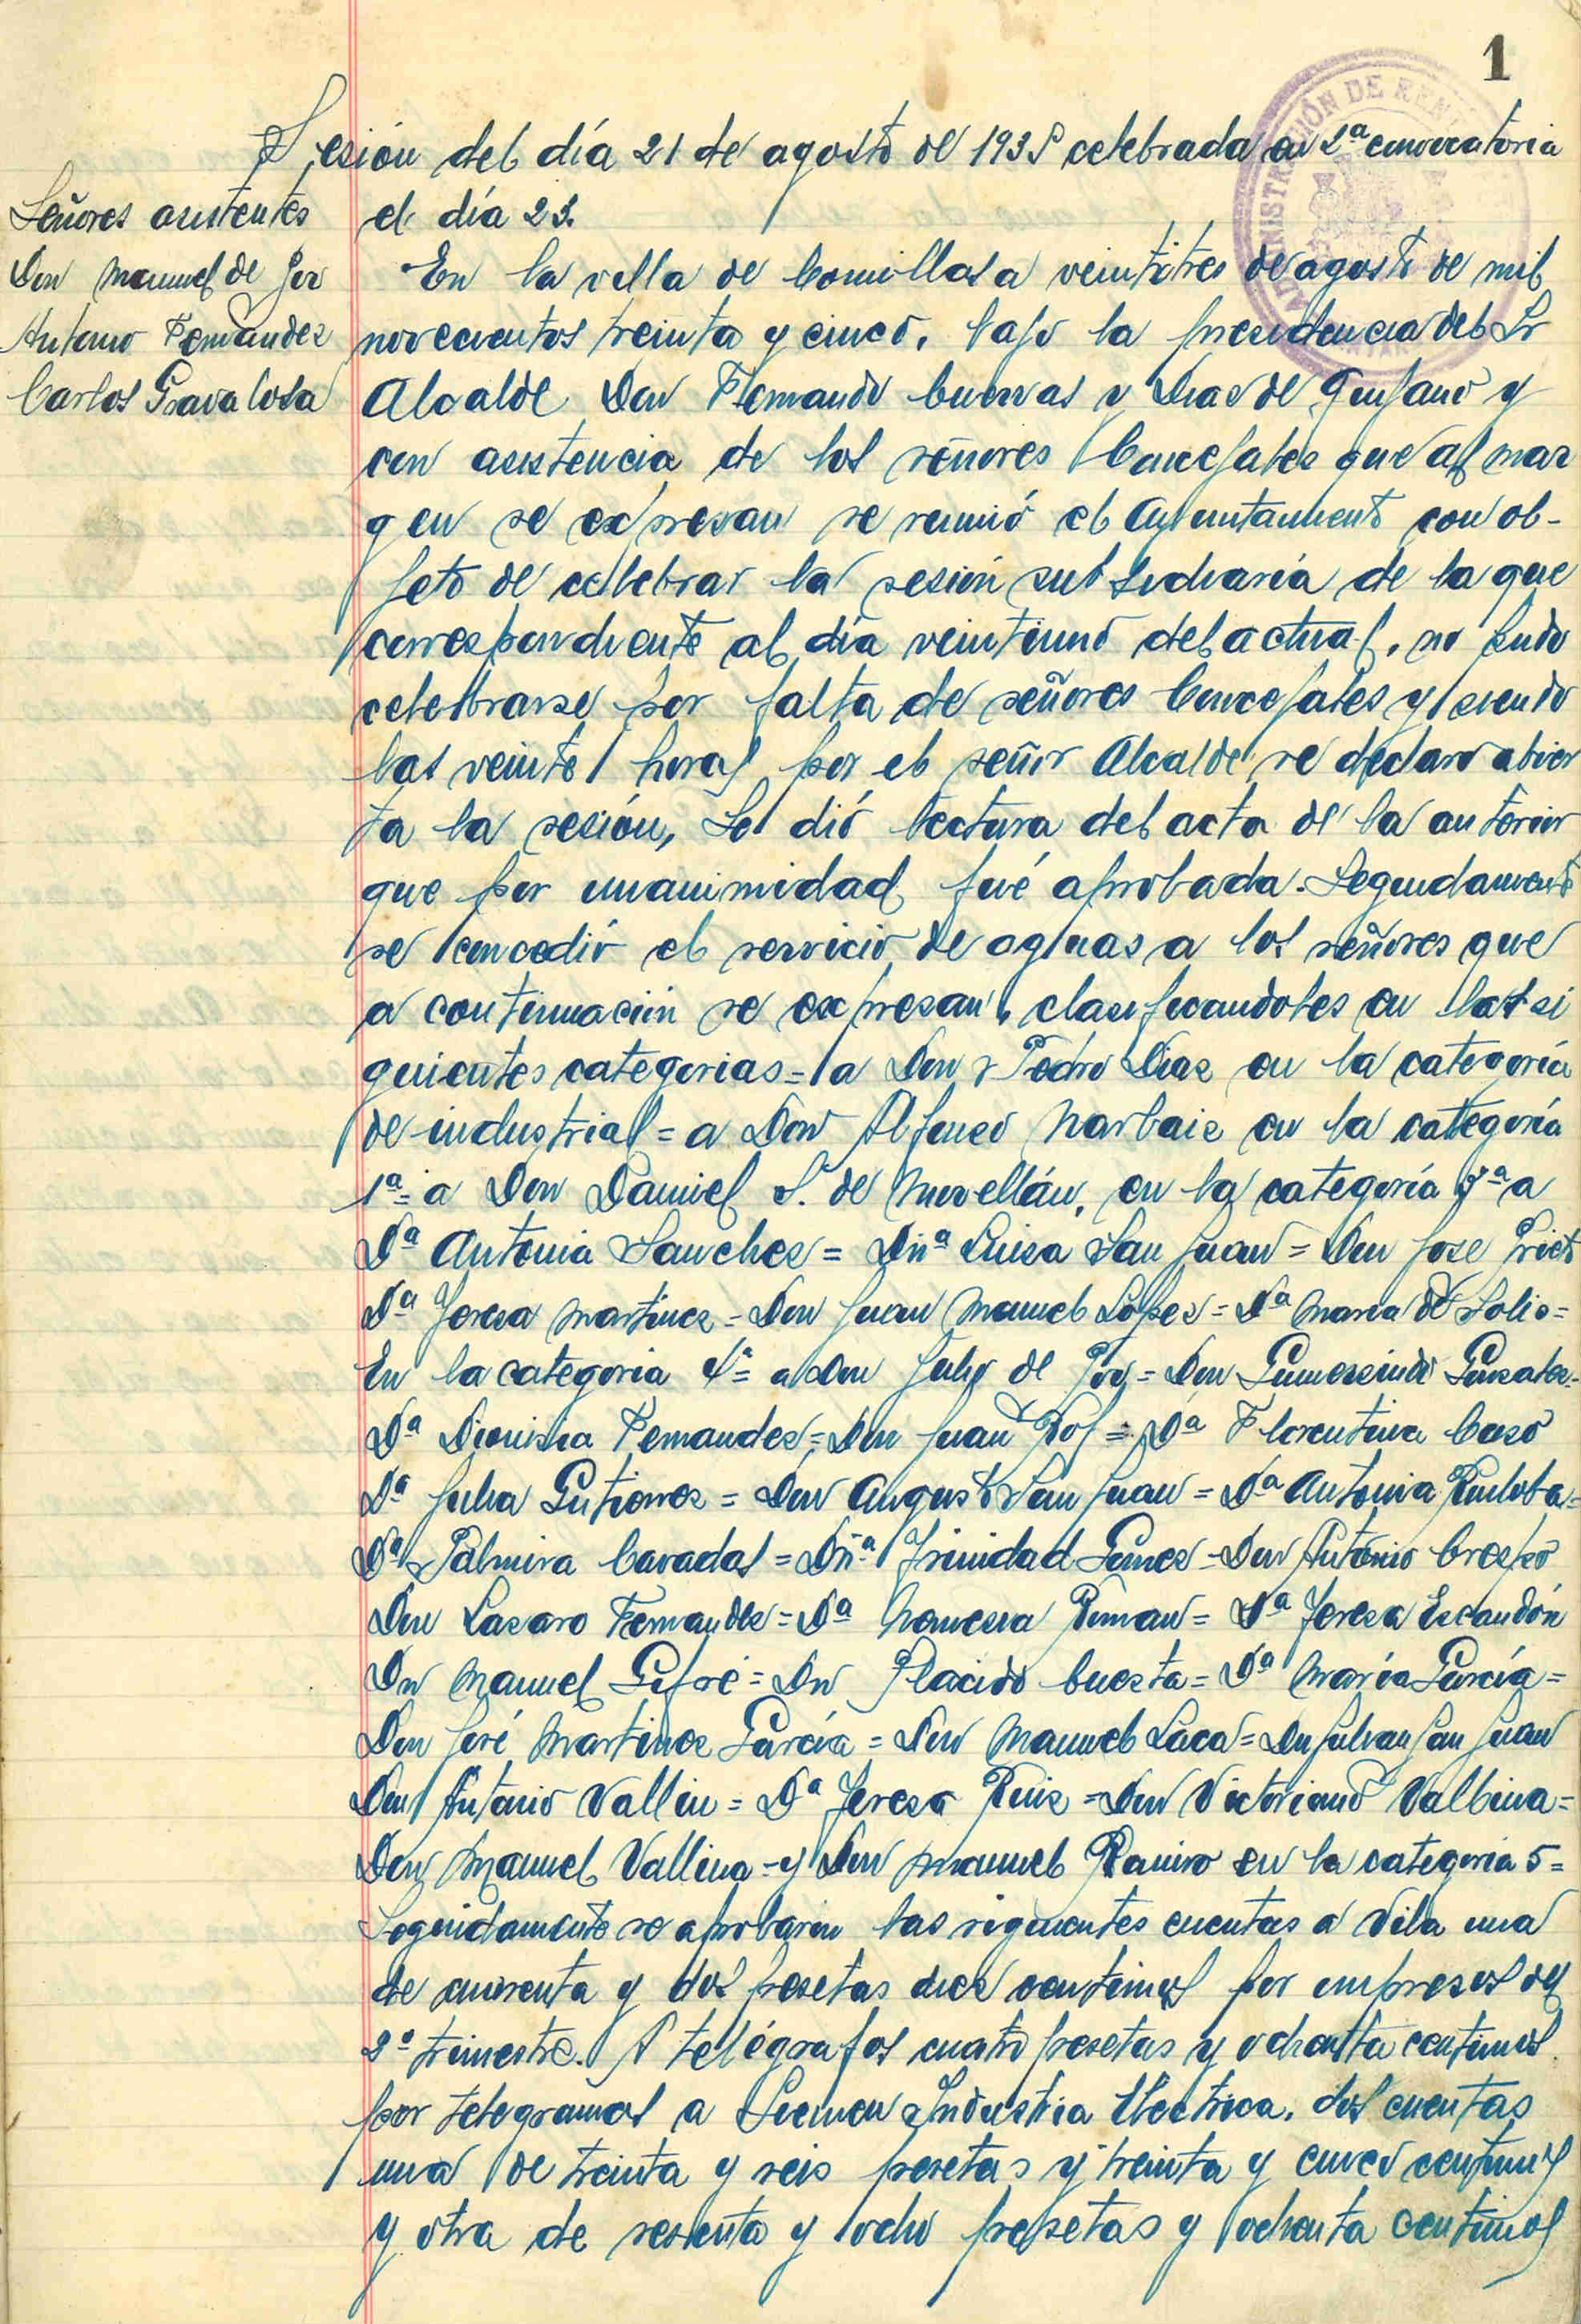 1
Sesión del día 21 de agosto de 1935 celebrada en 2ª convocatoria
el día 23.
Señores asistentes
Don Manuel de
Antonio Fernandez
Carlos Gravalosa
En la villa de Comillas a veintitres de agosto de mil
novecientos treinta y cinco, bajo la presidencia del Sr
Alcalde Don Fernando Cuevas y Diaz de Quijano y
con asistencia de los señores Concejales que al mar
gen se expresan se reunió el Ayuntamiento con ob-
jeto de celebrar la sesión subsidiaria de la que
correspondiente al día veintiuno del actual, no pudo
celebrarse por falta de señores Concejales y siendo
las veinte horas por el señor Alcalde se declaro abier
ta la sesión, Se dió lectura del acta de la anterior
que por unanimidad fué aprobada. Seguidamente
se concedió el servicio de aguas a los señores que
a continuación se expresan, clasificandoles en las si
guientes categorias = a Don Pedro Diaz en la categoría
de industrial = a Don Alfonso Narbaiz en la categoría
1ª = a Don Daniel S. de Movellán, en la categoría 3ª a
Dª Antonia Sanchez = Dñª Luisa San Juan = Don Jose Prieto
Dª Teresa Martinez = Don Juan Manuel Lopez = Dª Maria de Solis =
En la categoria 4ª = a Don Julio de = Don Gumersindo Gonzalez =
Dª Dionisia Fernandez = Don Juan = Dª Florentina Caso
Dª Julia Gutierrez = Don Augusto San Juan = Dª Antonia Ruiloba =
Dª Palmira Cavadas = Dñª Trinidad Gomez = Don Antonio Crespo
Don Lazaro Fernandez = Dª Roman = Dª Teresa Escandón
Dn Manuel = Dn Placido Cuesta = Dª María García =
Don José Martinez García = Don Manuel Laca = Dn Julian San Juan
Don Antonio Vallin = Dª Teresa Ruiz = Don Victoriano Vallina =
Don Manuel Vallina = y Don Manuel Ramiro en la categoria 5 =
Seguidamente se aprobaron las siguientes cuentas a Vila una
de cuarenta y dos pesetas diez centimos por impresos del
2º trimestre. A telégrafos cuatro pesetas y ochenta centimos
por telegramas a Siemen Industria Electrica. dos cuentas
una de treinta y seis pesetas y treinta y cinco centimos
y otra de sesenta y ocho pesetas y ochenta centimos